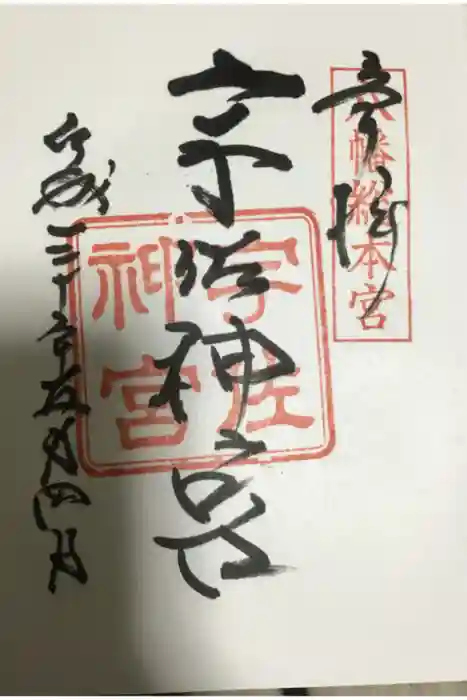 奉拝
八幡総本宮
宇佐神宮
宇佐神宮
平成三十年五月四日